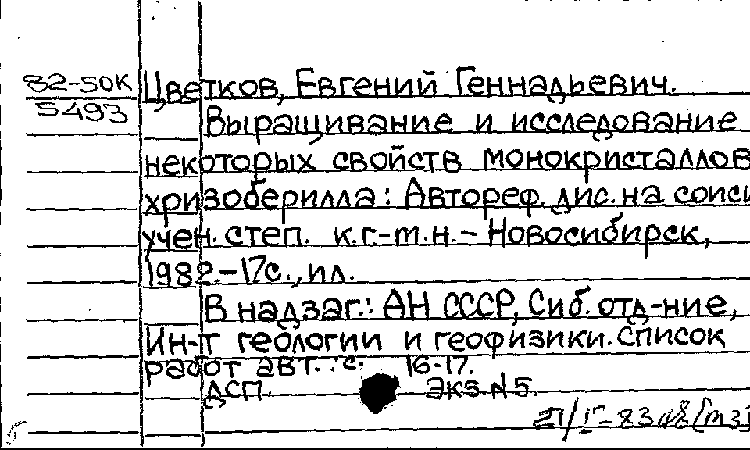 82-50К Цветков, Евгений Геннадьевич.
5493 Выращивание и исследование
некоторых свойств монокристаллов
хризоберилла: Автореф. дис. на соиск
учен. степ. к.г.-м.н. - Новосибирск,
1982. - 17с., ил.
В надзаг.: АН СССР, Сиб. отд-ние,
Ин-т геологии и геофизики. Список
работ авт.: с. 16-17.
ДСП Экз. № 5.